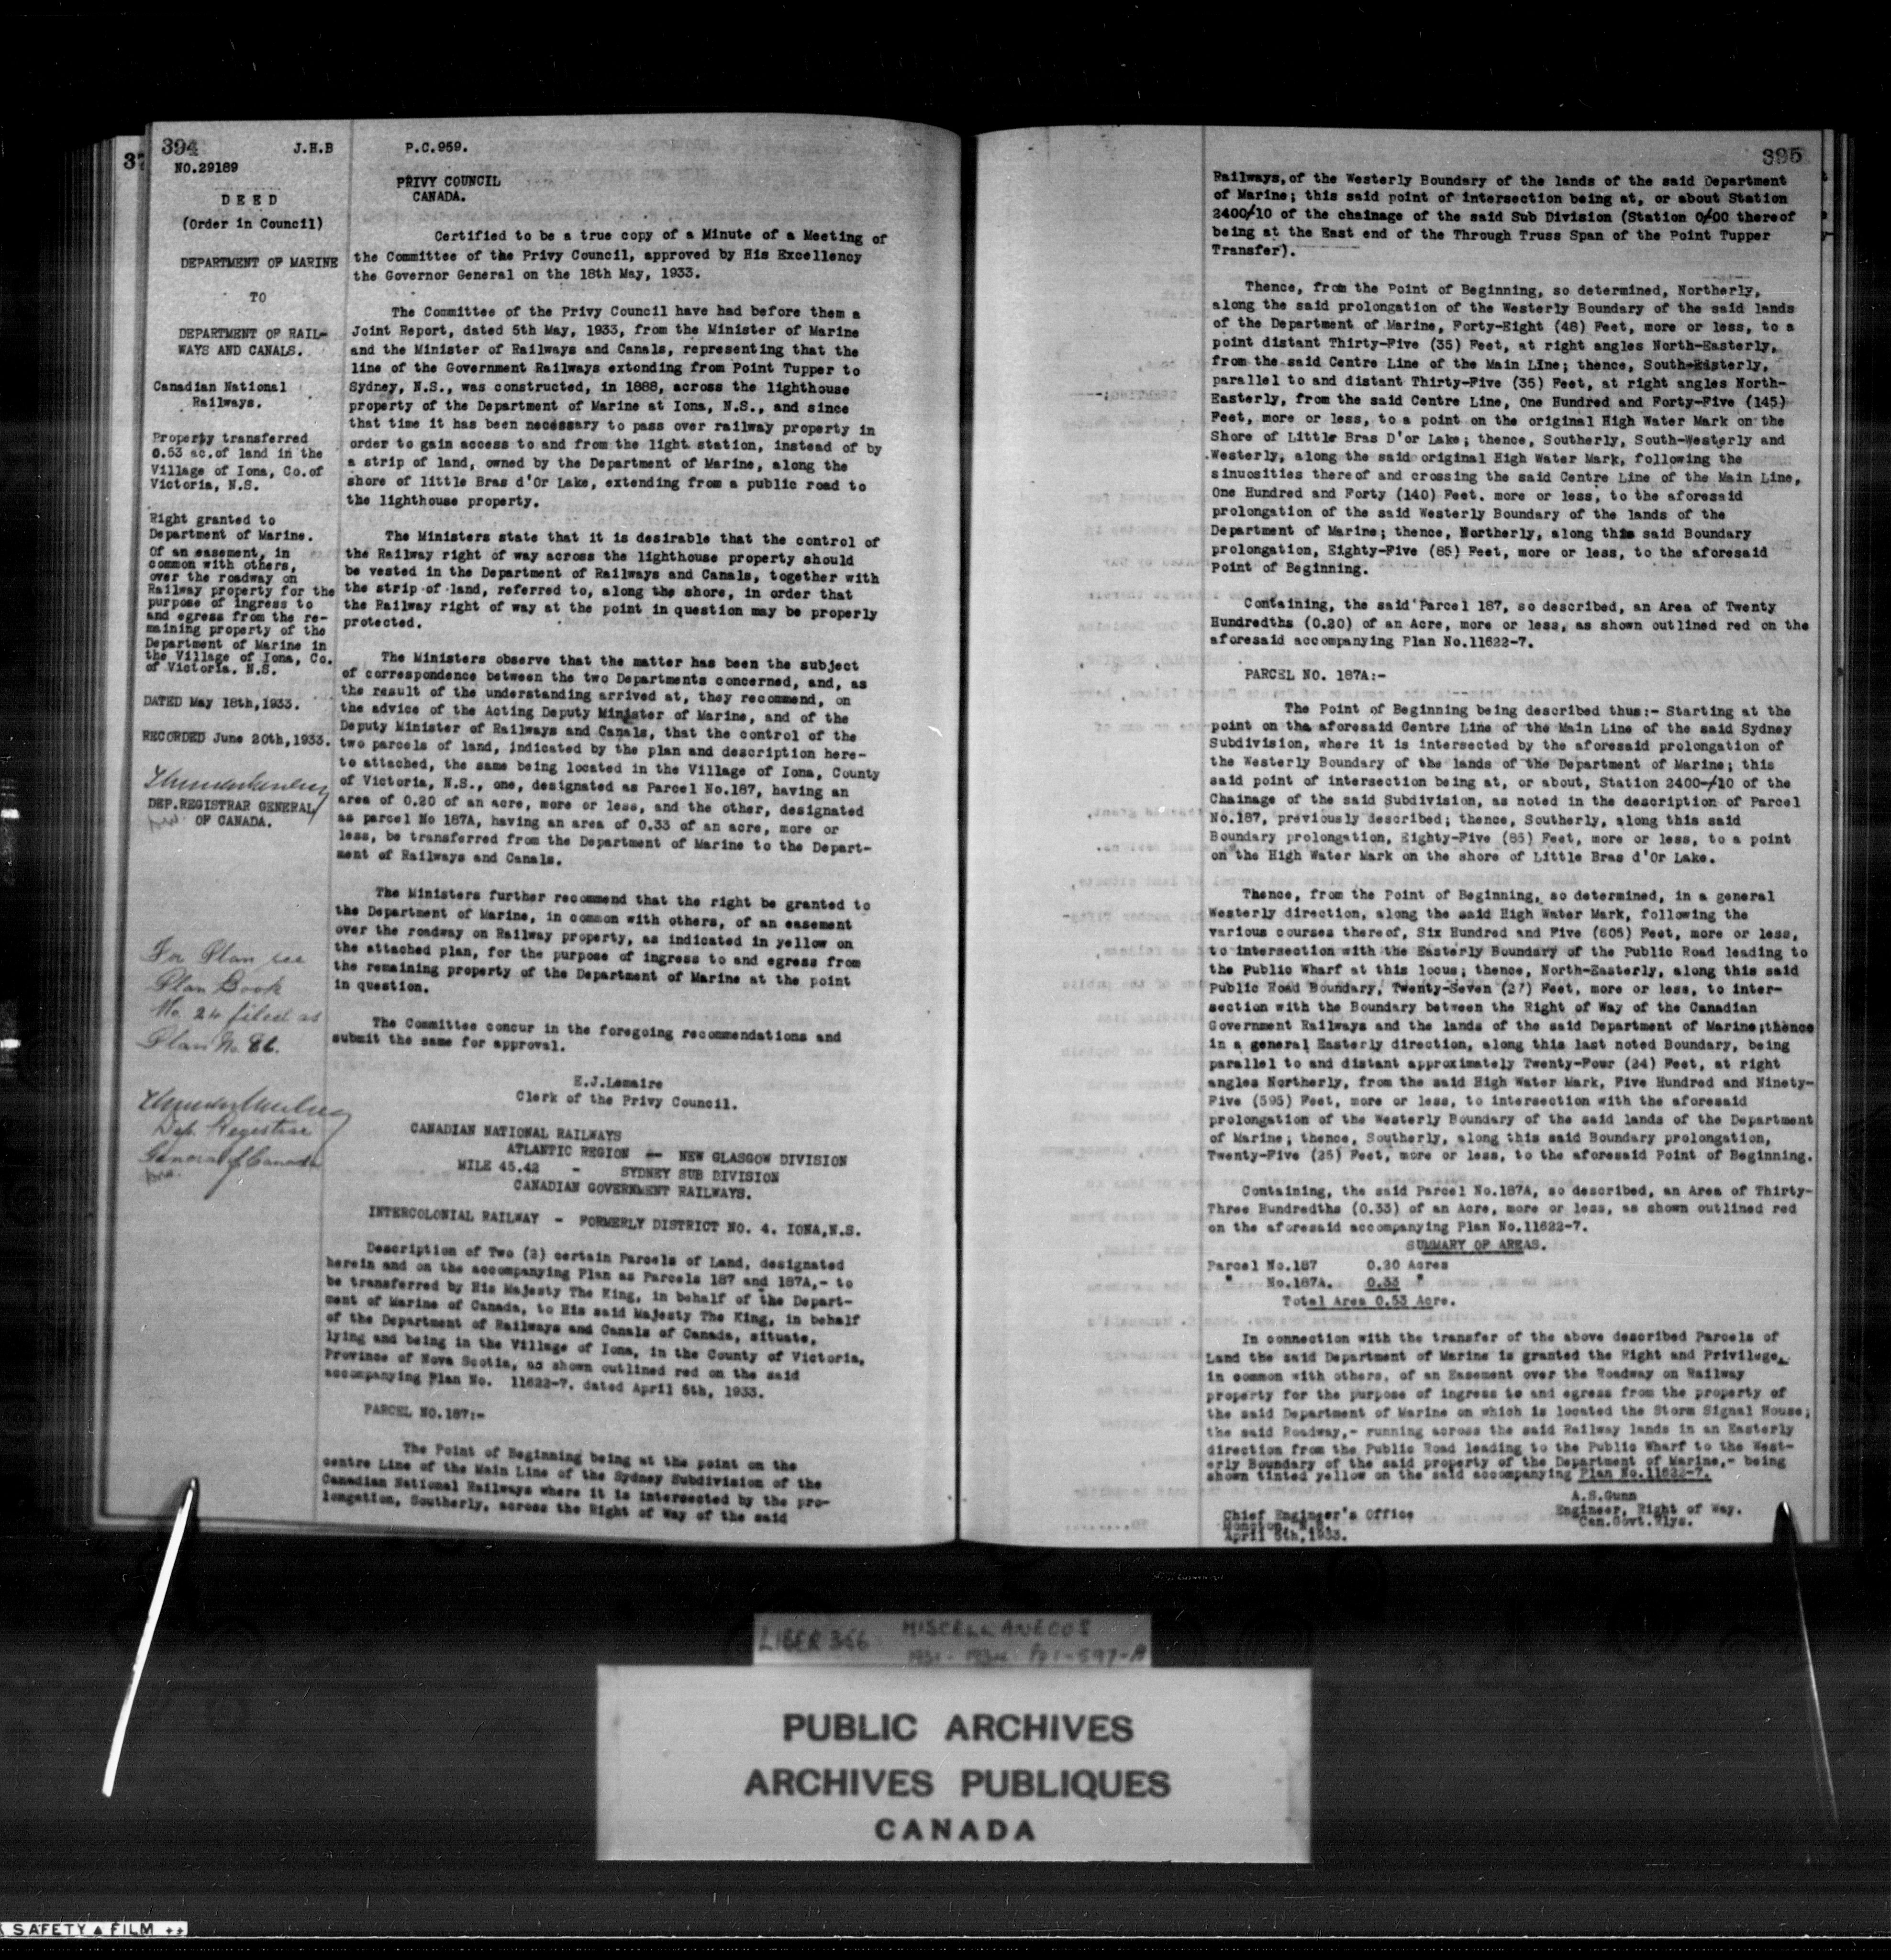 394
J.H.B
NO.29189
D E E D
(Order in Council)
DEPARTMENT OF MARINE
TO
DEPARTMENT OF RAIL-
WAYS AND CANALS.
Canadian National
Railways.
Property transferred
0.53 ac.of land in the
Village of Iona, Co.of
Victoria, N.S.
Right granted to
Department of Marine.
Of an easement, in
common with others,
over the roadway on
Railway property for the
purpose of ingress to
and egress from the re-
maining property of the
Department of Marine in
the Village of Iona, Co.
of Victoria. N.S.
DATED May 18th,1933.
RECORDED June 20th,1933.
DEP.REGISTRAR GENERAL
OF CANADA.
For Plan see
Plan Book
No. 24 filed as
Plan No. 86.
Dep. Registrar
General of Canada
P.C.959.
PRIVY COUNCIL
CANADA.
Certified to be a true copy of a Minute of a Meeting of
the Committee of the Privy Council, approved by His Excellency
the Governor General on the 18th May, 1933.
The Committee of the Privy Council have had before them a
Joint Report, dated 5th May, 1933, from the Minister of Marine
and the Minister of Railways and Canals, representing that the
line of the Government Railways extending from Point Tupper to
Sydney, N.S., was constructed, in 1888, across the lighthouse
property of the Department of Marine at Iona, N.S., and since
that time it has been necessary to pass over railway property in
order to gain access to and from the light station, instead of by
a strip of land, owned by the Department of Marine, along the
shore of little Bras d'Or Lake, extending from a public road to
the lighthouse property.
The Ministers state that it is desirable that the control of
the Railway right of way across the lighthouse property should
be vested in the Department of Railways and Canals, together with
the strip of land, referred to, along the shore, in order that
the Railway right of way at the point in question may be properly
protected.
The Ministers observe that the matter has been the subject
of correspondence between the two Departments concerned, and, as
the result of the understanding arrived at, they recommend, on
the advice of the Acting Deputy Minister of Marine, and of the
Deputy Minister of Railways and Canals, that the control of the
two parcels of land, indicated by the plan and description here-
to attached, the same being located in the Village of Iona, County
of Victoria, N.S., one, designated as Parcel No.187, having an
area of 0.20 of an acre, more or less, and the other, designated
as parcel No 187A, having an area of 0.33 of an acre, more or
less, be transferred from the Department of Marine to the Depart-
ment of Railways and Canals.
The Ministers further recommend that the right be granted to
the Department of Marine, in common with others, of an easement
over the roadway on Railway property, as indicated in yellow on
the attached plan, for the purpose of ingress to and egress from
the remaining property of the Department of Marine at the point
in question.
The Committee concur in the foregoing recommendations and
submit the same for approval.
E.J.Lemaire
Clerk of the Privy Council.
CANADIAN NATIONAL RAILWAYS
ATLANTIC REGION -- NEW GLASGOW DIVISION
MILE 45.42 - SYDNEY SUB DIVISION
CANADIAN GOVERNMENT RAILWAYS.
INTERCOLONIAL RAILWAY - FORMERLY DISTRICT NO. 4. IONA,N.S.
Description of Two (2) certain Parcels of Land, designated
herein and on the accompanying Plan as Parcels 187 and 187A,- to
be transferred by His Majesty The King, in behalf of the Depart-
ment of Marine of Canada, to His said Majesty The King, in behalf
of the Department of Railways and Canals of Canada, situate,
lying and being in the Village of Iona, in the County of Victoria,
Province of Nova Scotia, as shown outlined red on the said
accompanying Plan No. 11622-7. dated April 5th, 1933.
PARCEL NO.187:-
The Point of Beginning being at the point on the
centre Line of the Main Line of the Sydney Subdivision of the
Canadian National Railways where it is intersected by the pro-
longation, Southerly, across the Right of Way of the said
395
Railways, of the Westerly Boundary of the lands of the said Department
of Marine; this said point of intersection being at, or about Station
2400/10 of the chainage of the said Sub Division (Station 0/00 thereof
being at the East end of the Through Truss Span of the Point Tupper
Transfer).
Thence, from the Point of Beginning, so determined, Northerly,
along the said prolongation of the Westerly Boundary of the said lands
of the Department of Marine, Forty-Eight (48) Feet, more or less, to a
point distant Thirty-Five (35) Feet, at right angles North-Easterly,
from the said Centre Line of the Main LIne; thence, South-Easterly,
parallel to and distant Thirty-Five (35) Feet, at right angles North-
Easterly, from the said Centre Line, One Hundred and Forty-Five (145)
Feet, more or less, to a point on the original High Water Mark on the
Shore of Little Bras D'or Lake; thence, Southerly, South-Westerly and
Westerly, along the said original High Water Mark, following the
sinuosities thereof and crossing the said Centre Line of the Main Line,
One Hundred and Forty (140) Feet. more or less, to the aforesaid
prolongation of the said Westerly Boundary of the lands of the
Department of Marine; thence, Northerly, along this said Boundary
prolongation, Eighty-Five (85) Feet, more or less, to the aforesaid
Point of Beginning.
Containing, the said Parcel 187, so described, an Area of Twenty
Hundredths (0.20) of an Acre, more or less, as shown outlined red on the
aforesaid accompanying Plan No.11622-7.
PARCEL NO. 187A:-
The Point of Beginning being described thus:- Starting at the
point on the aforesaid Centre Line of the Main Line of the said Sydney
Subdivision, where it is intersected by the aforesaid prolongation of
the Westerly Boundary of the lands of the Department of Marine; this
said point of intersection being at, or about, Station 2400-/10 of the
Chainage of the said Subdivision, as noted in the description of Parcel
No.187, previously described; thence, Southerly, along this said
Boundary prolongation, Eighty-Five (85) Feet, more or less, to a point
on the High Water Mark on the shore of Little Bras d'Or Lake.
Thence, from the Point of Beginning, so determined, in a general
Westerly direction, along the said High Water Mark, following the
various courses thereof, Six Hundred and Five (605) Feet, more or less,
to intersection with the Easterly Boundary of the Public Road leading to
the Public Wharf at this locus; thence, North-Easterly, along this said
Public Road Boundary, Twenty-Seven (27) Feet, more or less, to inter-
section with the Boundary between the Right of Way of the Canadian
Government Railways and the lands of the said Department of Marine;thence
in a general Easterly direction, along this last noted Boundary, being
parallel to and distant approximately Twenty-Four (24) Feet, at right
angles Northerly, from the said High Water Mark, Five Hundred and Ninety-
Five (595) Feet, more or less, to intersection with the aforesaid
prolongation of the Westerly Boundary of the said lands of the Department
of Marine; thence, Southerly, along this said Boundary prolongation,
Twenty-Five (25) Feet, more or less, to the aforesaid Point of Beginning.
Containing, the said Parcel No.187A, so described, an Area of Thirty-
Three Hundredths (0.33) of an Acre, more or less, as shown outlined red
on the aforesaid accompanying Plan No.11622-7.
SUMMARY OF AREAS.
Parcel No.187 0.20 Acres
" No.187A. 0.33 "
Total Area 0.53 Acre.
In connection with the transfer of the above described Parcels of
Land the said Department of Marine is granted the Right and Privilege,
in common with others, of an Easement over the Roadway on Railway
property for the purpose of ingress to and egress from the property of
the said Department of Marine on which is located the Storm Signal House;
the said Roadway,- running across the said Railway lands in an Easterly
direction from the Public Road leading to the Public Wharf to the West-
erly Boundary of the said property of the Department of Marine,- being
shown tinted yellow on the said accompanying Plan No.11622-7.
A.S.Gunn
Engineer, Right of Way.
Can.Govt.Rlys.
Chief Engineer's Office
Moncton
April 5th,1933.
LIBER 356 MISCELLANEOUS
1931-1934 Pp1-597-A
PUBLIC ARCHIVES
ARCHIVES PUBLIQUES
CANADA
SAFETY FILM